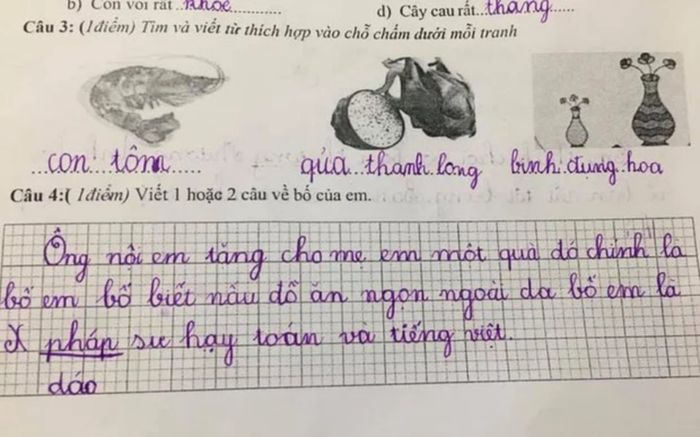 b) Con voi rất...khỏe............
d) Cây cau rất..thẳng......
Câu 3: (1điểm) Tìm và viết từ thích hợp vào chỗ chấm dưới mỗi tranh
...con...tôm...... qủa...thanh.long bình.đưng.hoa
Câu 4:( 1điểm) Viết 1 hoặc 2 câu về bố của em.
Ông nội em tăng cho mẹ em một quà đó chính là
bố em bố biết nâu đồ ăn ngọn ngoài da bố em là
X pháp sư hạy toán và tiếng việt.
dáo